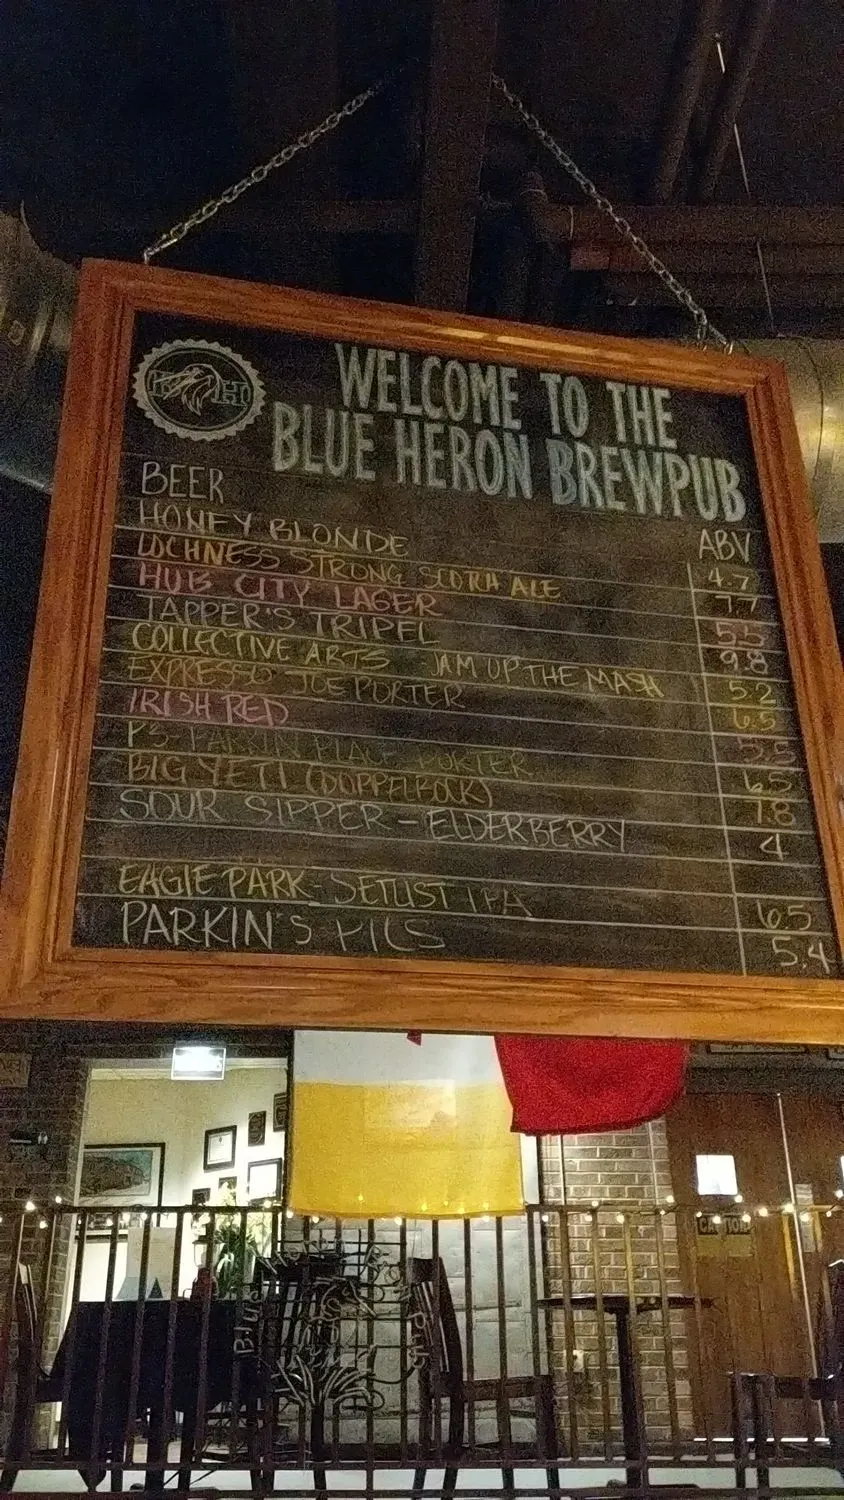 BH
WELCOME TO THE
BLUE HERON BREWPUB
BEER ABV
HONEY BLONDE 4.7
LOCHNESS STRONG SCOTCH ALE 7.7
HUB CITY LAGER 5.5
TAPPER'S TRIPEL 9.8
COLLECTIVE ARTS JAM UP THE MASH 5.2
EXPRESSO JOE PORTER 6.5
IRISH RED 5.5
P3-PARKIN PLACE PORTER 6.5
BIG YETI (DOPPELBOCK) 7.8
SOUR SIPPER - ELDERBERRY 4
EAGLE PARK - SETLIST IPA 6.5
PARKIN'S PILS 5.4
CAUTION
Blue